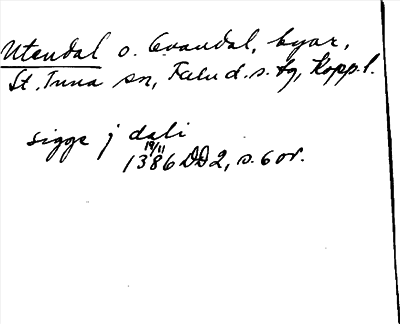 Utendal o. Ovandal, byar,
St. Tuna sn, Falu d.s. tg, Kopp. l.
sigge j dali
19/11
1386 DD2, s. 60r.